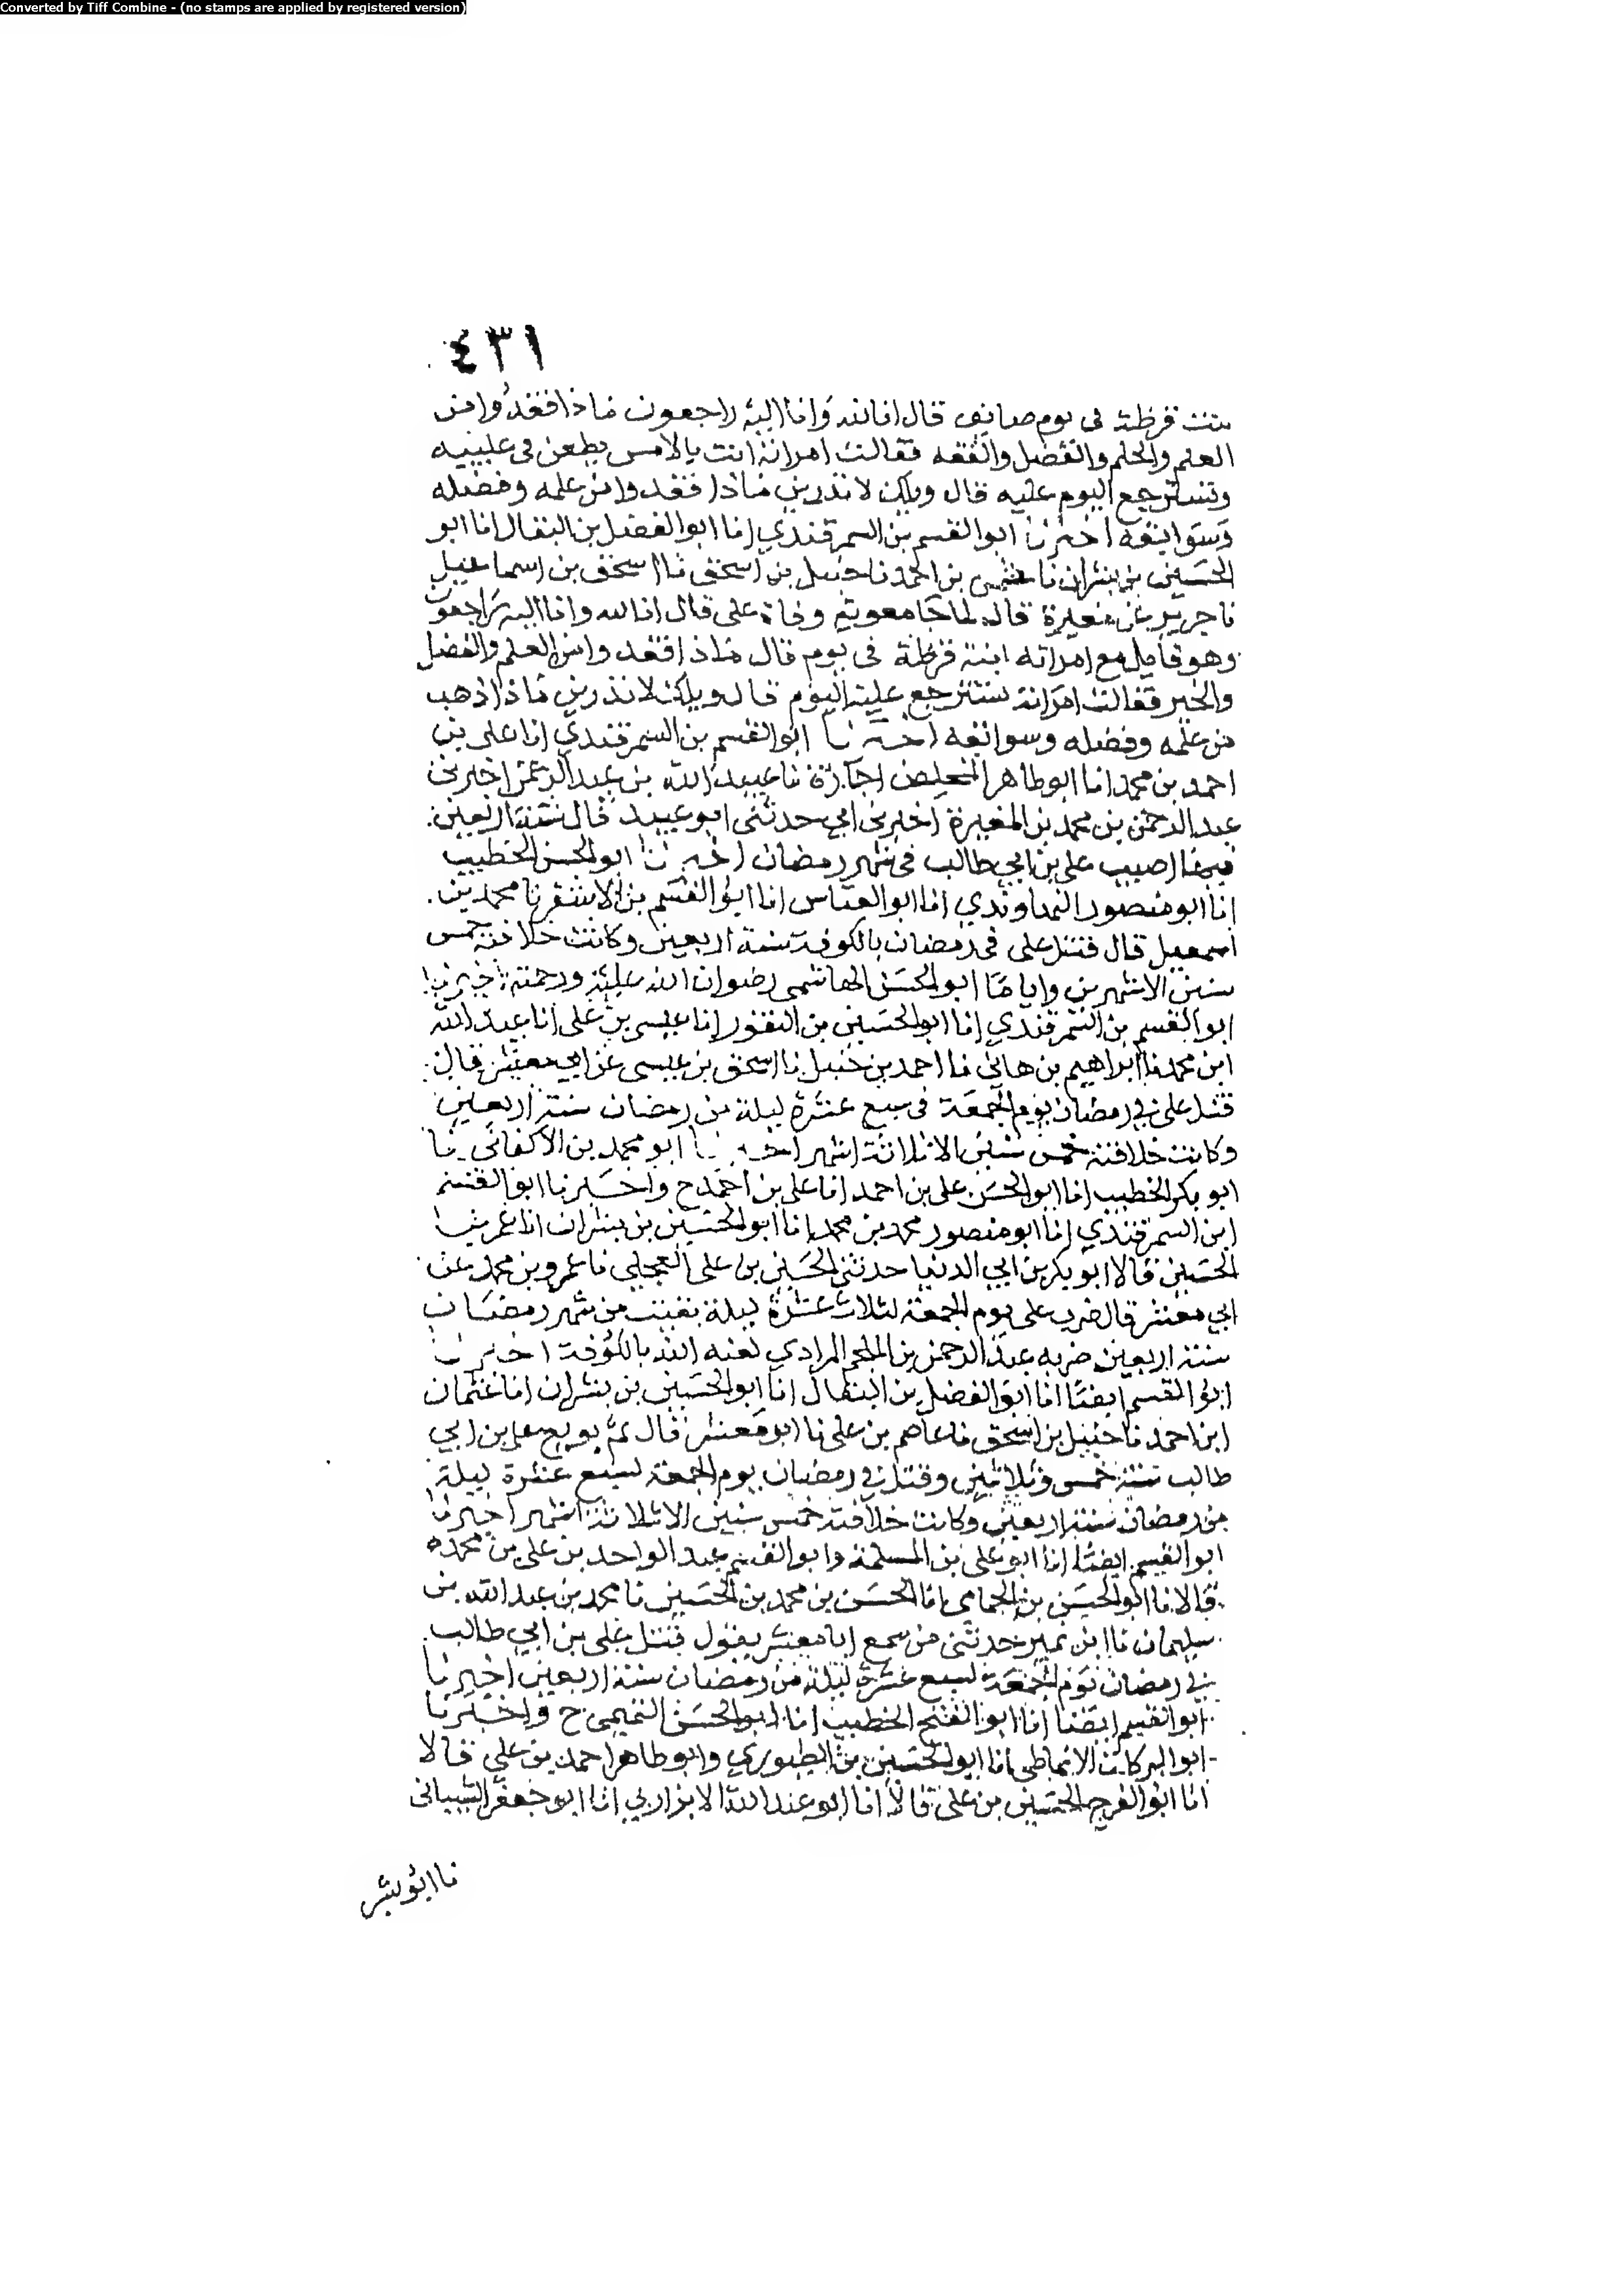 Converted by Tiff Combine - (no stamps are applied by registered version)
٤٣١
بنت قرظة فى يوم صايف قال انا لله وانا اليه راجعون ماذا فقدوا من
العلم والحلم والفضل والفقه فقالت امراته انت بالامس يطعن فى عينيه
وتسترجع اليوم عليه قال ويلك لا تدرين ماذا فقدوا من علمه وفضله
وسوابقه اخبرنا ابو القسم بن السمرقندي انا ابو الفضل بن البقال انا ابو
الحسين بن بشران نا عثمن بن احمد نا حنبل بن اسحق نا اسحق بن اسماعيل
نا جرير عن مغيرة قال لما جا معوية وفاة على قال انا لله وانا اليه راجعون
وهو قايل مع امراته ابنة قرظة فى يوم قال ماذا فقدوا من العلم والفضل
والخير فقالت امراته تسترجع عليه اليوم قال ويلك لا تدرين ماذا ذهب
من علمه وفضله وسوابقه اخبرنا ابو القسم بن السمرقندي انا على بن
احمد بن محمد انا ابو طاهر المخلص اجازة نا عبيد الله بن عبد الرحمن اخبرنى
عبد الرحمن بن محمد بن المغيرة اخبرنى ابي حدثنى ابو عبيد قال سنة اربعين
فيها اصيب على بن ابي طالب فى شهر رمضان اخبرنا ابو الحسن الخطيب
انا ابو منصور النهاوندي انا ابو العباس انا ابو القسم بن الاشقر نا محمد بن
اسمعيل قال قتل على فى رمضان بالكوفة سنة اربعين وكانت خلافته خمس
سنين الا شهرين واياما ابو الحسن الهاشمى رضوان الله عليه ورحمته اخبرنا
ابو القسم بن السمرقندي انا ابو الحسين بن النقور انا عيسى بن على انا عبد الله
ابن محمد نا ابراهيم بن هانى نا احمد بن حنبل نا اسحق بن عيسى عن ابي معشر قال
قتل على فى رمضان يوم الجمعة فى سبع عشرة ليلة من رمضان سنة اربعين
وكانت خلافته خمس سنين الا ثلاثة اشهر اخبرنا ابو محمد بن الاكفانى نا
ابو بكر الخطيب انا ابو الحسن على بن احمد انا على بن احمد ح واخبرنا ابو القسم
ابن السمرقندي انا ابو منصور محمد بن محمد انا ابو الحسين بن بشران انا عمر بن
الحسين قالا ابو بكر بن ابي الدنيا حدثنى الحسين بن على العجلي نا عمرو بن محمد عن
ابي معشر قال ضرب على يوم الجمعة لثلاث عشرة ليلة بقيت من شهر رمضان
سنة اربعين ضربه عبد الرحمن بن الملجم المرادي لعنه الله بالكوفة اخبرنا
ابو القسم ايضا انا ابو الفضل بن البقال انا ابو الحسين بن بشران انا عثمان
ابن احمد نا حنبل بن اسحق نا عاصم بن على نا ابو معشر قال ثم بويع على بن ابي
طالب سنة خمس وثلاثين وقتل فى رمضان يوم الجمعة لسبع عشرة ليلة
من رمضان سنة اربعين وكانت خلافته خمس سنين الا ثلاثة اشهر اخبرنا
ابو القسم ايضا انا ابو على بن المسلمة وابو القسم عبد الواحد بن على بن محمد
قالا نا ابو الحسن بن الحمامى انا الحسن بن محمد بن الحسين نا محمد بن عبد الله بن
سليمان نا ابن نمير حدثنى من سمع ابا معشر يقول قتل على بن ابي طالب
فى رمضان يوم الجمعة لسبع عشرة ليلة من رمضان سنة اربعين اخبرنا
ابو القسم ايضا انا ابو الفتح الخطيب انا ابو الحسن التميمى ح واخبرنا
ابو البركات الانماطى انا ابو الحسين بن الطيوري وابو طاهر احمد بن على قالا
انا ابو الفرج الحسين بن على قالا انا ابو عبد الله الابزاري انا ابو جعفر الشيبانى
نا ابو بشر